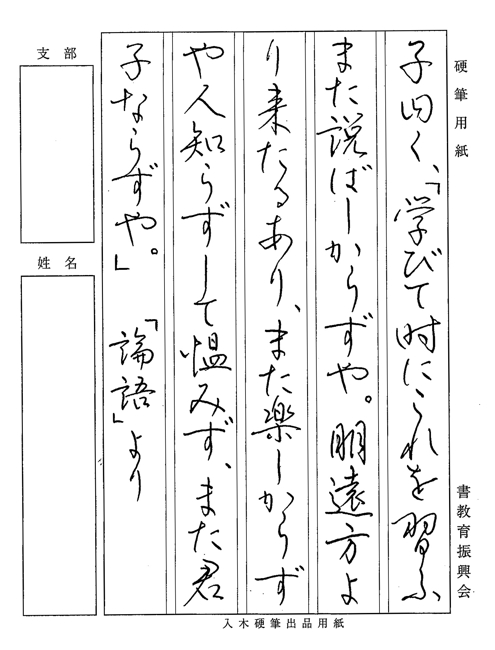 硬筆用紙
書教育振興会
子曰く、「学びて時にこれを習ふ
また説ばしからずや。朋遠方よ
り来たるあり、また楽しからず
や人知らずして慍みず、また君
子ならずや。」 「論語」より
支部
姓名
入木硬筆出品用紙